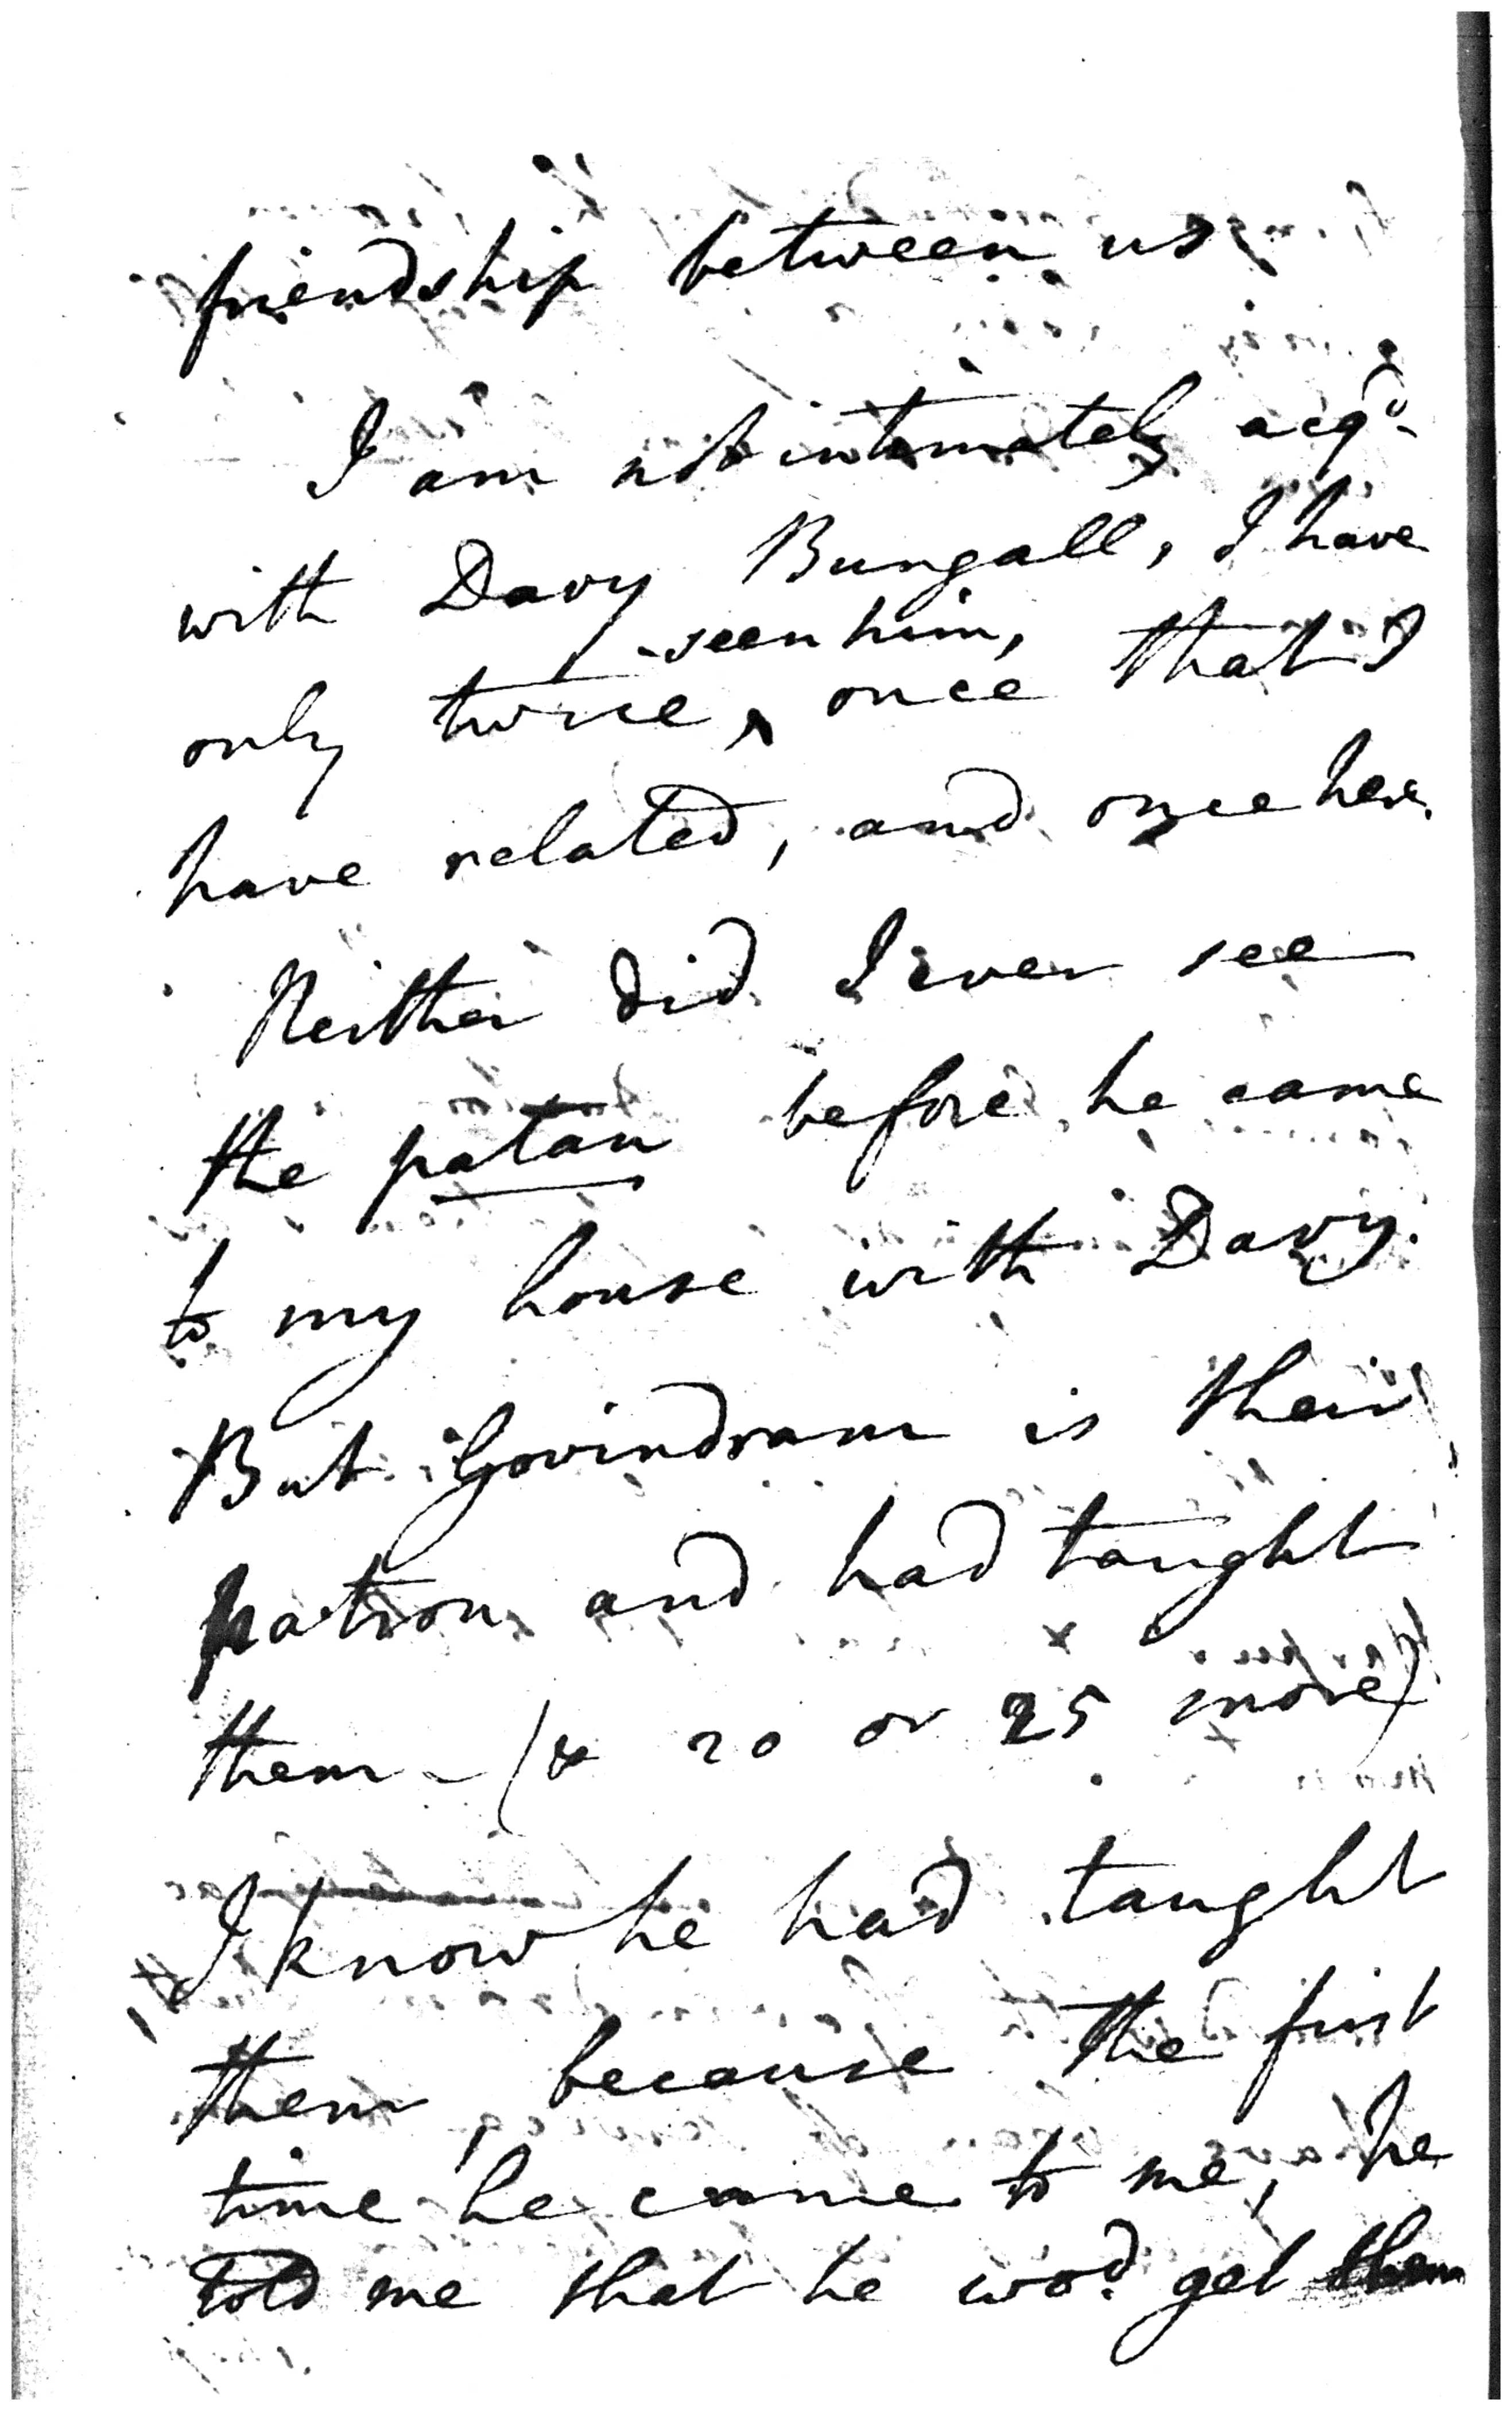 friendship between us.
I am not intimately acqd.
with Davy Bungall, I have
seen him,
only twice, ^ once that I
have related, and once here.
Neither did I ever see
the patan before he came
to my house with Davy.
But Govindram is their
patron and had taught
them - (& 20 or 25 more)
I know he had taught
them, because the first
time he came to me, he
told me that he wod. get them